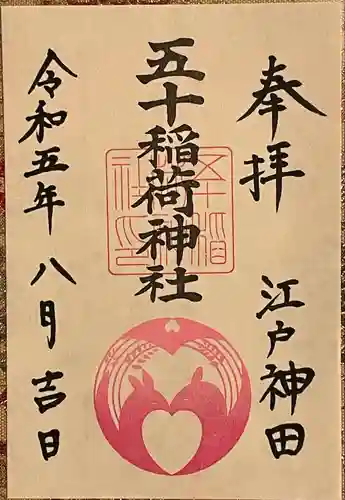 奉拝
江戸神田
五十稲荷神社
令和五年 八月吉日